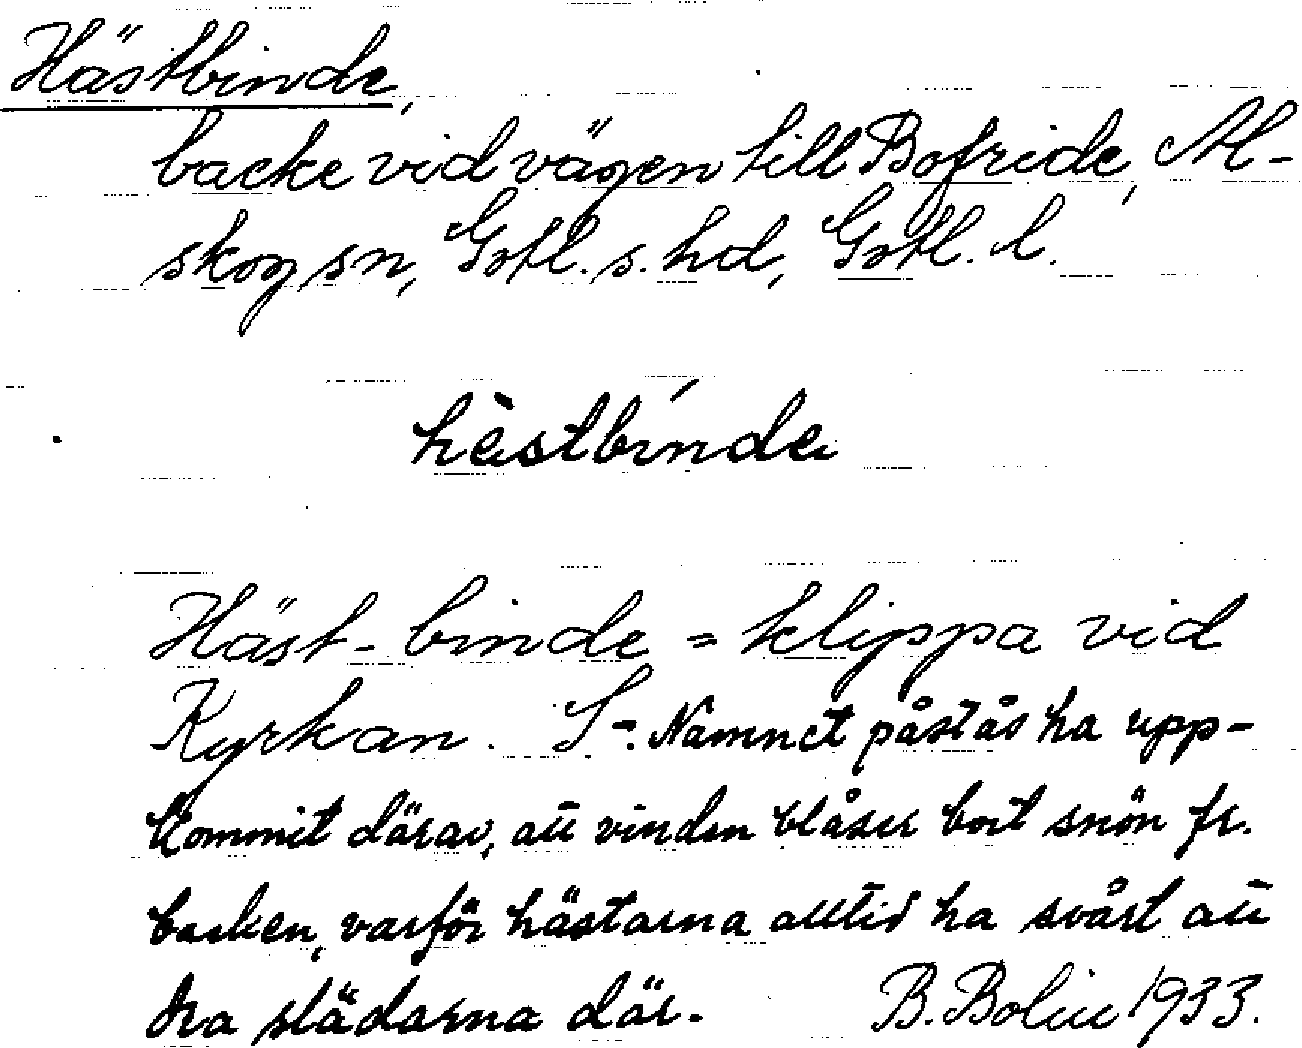 Hästbinde,
backe vid vägen till Bofride, Al-
skog sn, Gotl. s. hd, Gotl. l.
hèstbínde
Häst-binde = klippa vid
Kyrkan. S-: Namnet påstås ha upp-
kommit därav, att vinden blåser bort snön fr.
backen, varför hästarna alltid ha svårt att
dra slädarna där. B. Bolin 1933.